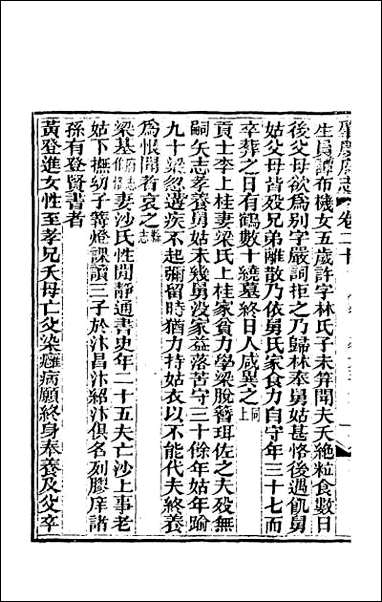 肇慶府志 卷二十
生員譚布機女五歲許字林氏子未笄聞夫夭絶粒食數日
後父母欲為别字嚴詞拒之乃歸林奉舅姑甚恪後遇飢舅
姑父母皆殁兄弟離散乃依舅氏家食力自守年三十七而
卒葬之日有鶴數十繞墓終日人咸異之同上
貢士李上桂妻梁氏上桂家貧力學梁脫簪珥佐之夫殁無
嗣矢志孝養舅姑未幾舅没家益落苦守三十餘年姑年踰
九十梁忽遘疾不起彌留時猶力持姑衣以不能代夫終養
為恨聞者哀之縣志
梁基妻沙氏性閒静通書史年二十五夫亡沙上事老
姑下撫幼子篝燈課讀三子於沐昌沐紹沐俱名列膠庠諸
孫有登賢書者
黄登進女性至孝兄夭母亡父染癱病願終身奉養及父卒